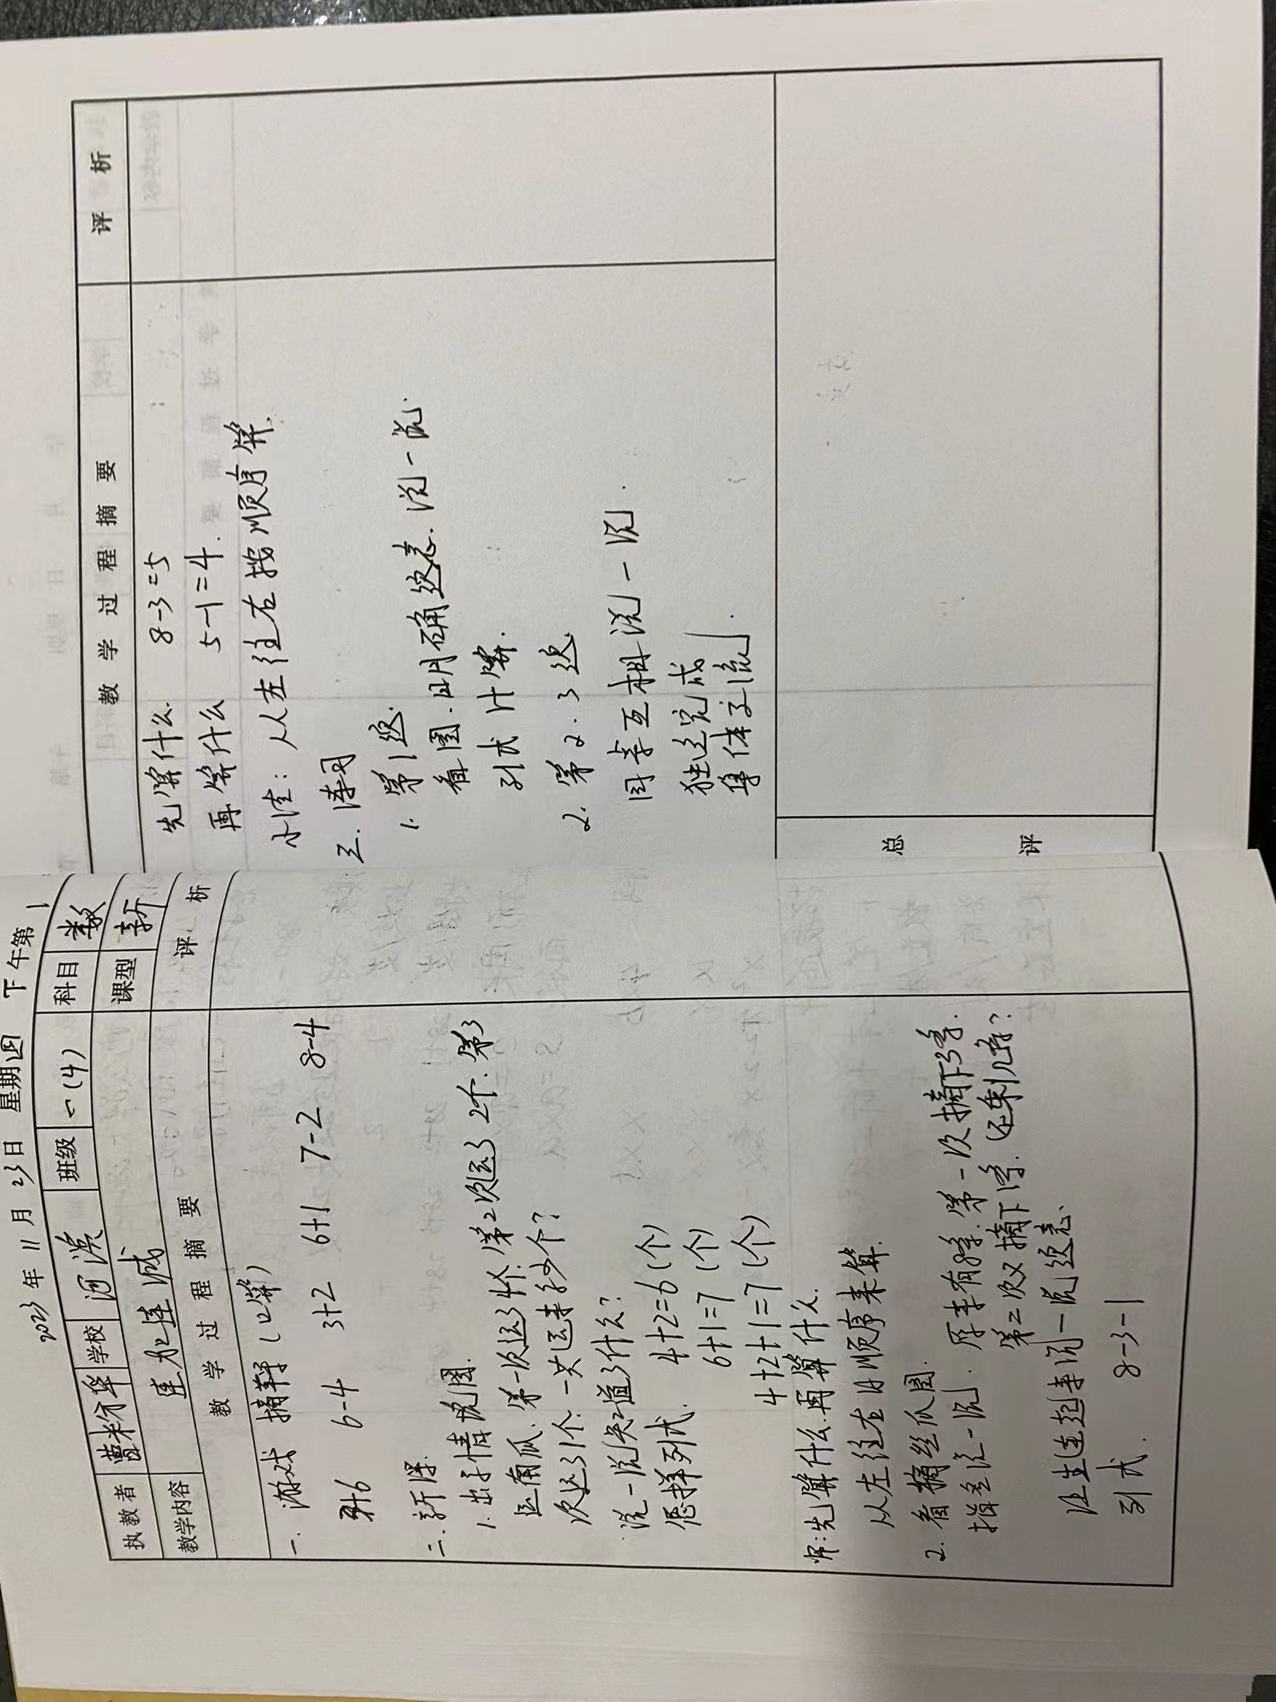 2023年11月23日 星期四 下午第1
执教者 曹米分华 学校 河滨 班级 一(4) 科目 数
教学内容 连加连减 课型 新
教学过程摘要 评析
一. 游戏 摘苹 (口算)
6-4 3+2 6+1 7-2 8-4
二. 新课.
1. 出示情境图.
运南瓜. 第一次运3 4个. 第2次运3 2个. 第3
次运3 1个. 一共运来多少个?
说一说知道3什么? 4+2=6(个)
怎样列式. 6+1=7(个)
4+2+1=7(个)
师:先算什么再算什么.
从左往右的顺序来算.
2. 看摘丝瓜图.
指名说一说. 原来有8条. 第一次摘下3条.
第二次又摘下1条. 还剩几条?
让生连起来说一说题意.
列式. 8-3-1
教学过程摘要 评析
先算什么. 8-3=5
再算什么 5-1=4.
小结: 从左往右按顺序算.
三. 练习
1. 第1题.
看图. 明确题意. 说一说.
列式计算.
2. 第2.3题
同桌互相说一说.
独立完成
集体交流.
总评